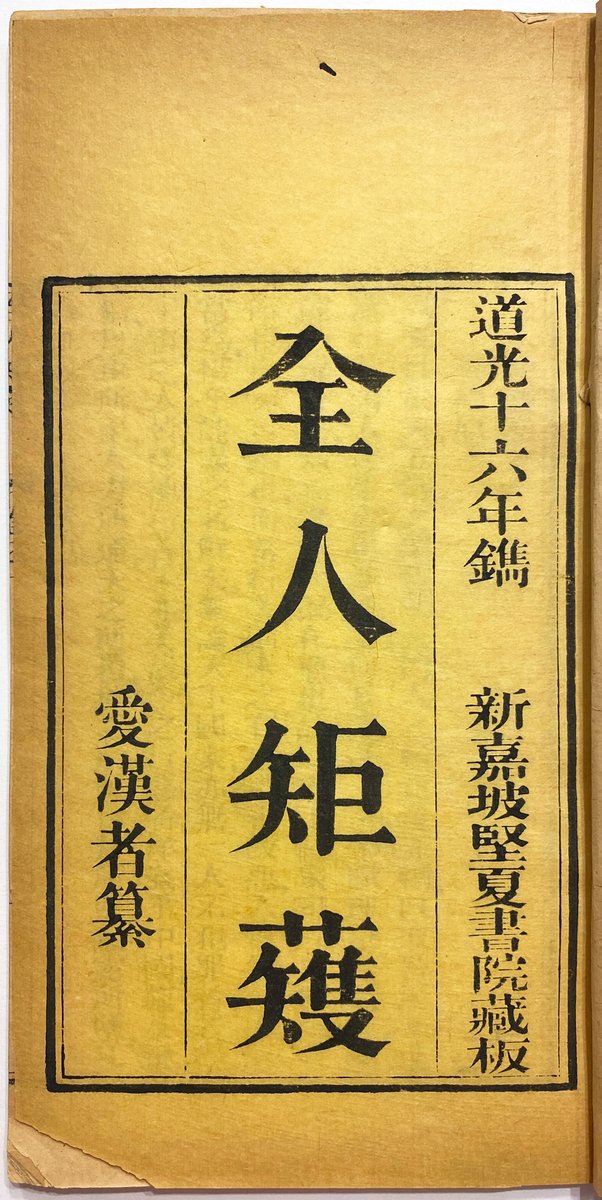 道光十六年鐫　新嘉坡堅夏書院藏板
全人矩矱
愛漢者纂